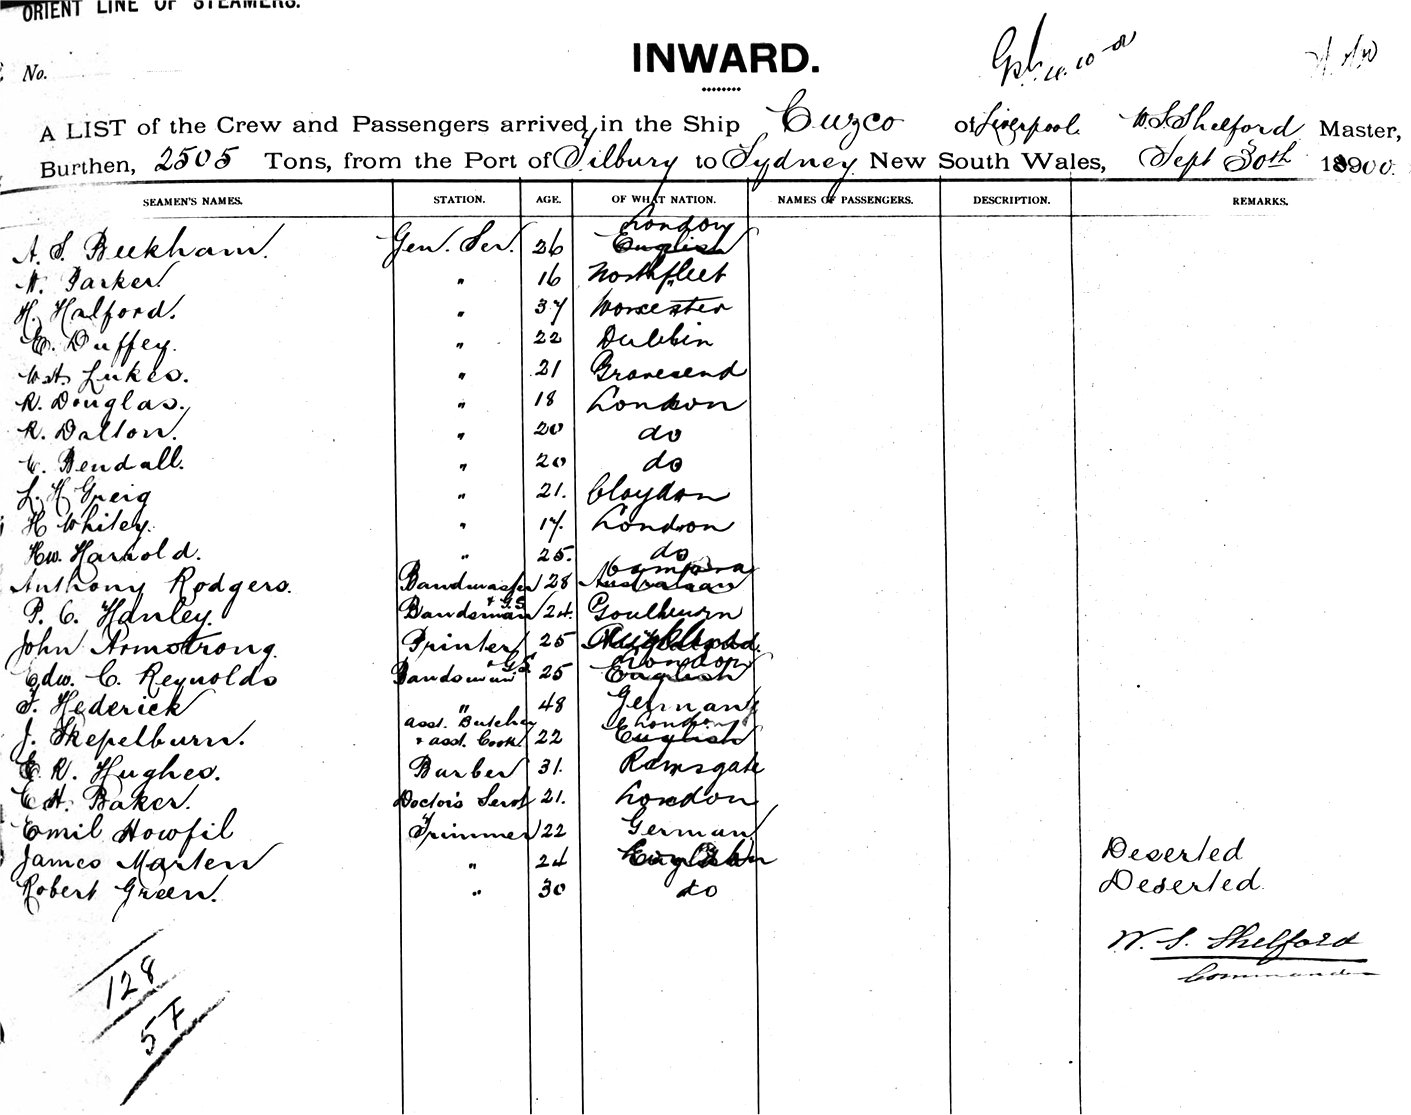 ORIENT LINE OF STEAMERS.
INWARD.
No.
A LIST of the Crew and Passengers arrived in the Ship Cuzco of Liverpool W. S. Shelford Master,
Burthen, 2505 Tons, from the Port of Tilbury to Sydney New South Wales, Sept 30th 1900.
SEAMEN'S NAMES. STATION. AGE. OF WHAT NATION. NAMES OF PASSENGERS. DESCRIPTION. REMARKS.
London
A. S. Beekham. Gen. Ser. 26 English
Parker. " 16 Northfleet
H. Halford. " 37 Worcester
E. Duffey. " 22 Dublin
Lukes. " 21 Gravesend
R. Douglas. " 18 London
R. Dalton. " 20 do
Bendall. " 20 do
L. H Greig " 21. Cloydon
H Whitey. " 17. London
Hw. Harrold. " 25. do
Anthony Rodgers. Bandmaster 28 Australian
P. C. Hanley. Bandsman + G.S 24. Goulburn
John Armstrong. Printer 25
London
Edw. C. Reynolds Bandsman + G.S. 25 English
F. Hederick " 48 German
asst. Butcher London
J. Skepelburn. + asst. Cook. 22 English
E. R. Hughes. Barber 31. Ramsgate
E H. Baker. Doctor's Servt 21. London
Emil Howfil Trimmer 22 German
James Marten " 24 Deserted
Robert Green. " 30 do Deserted.
W. S. Shelford
Commander
128
57